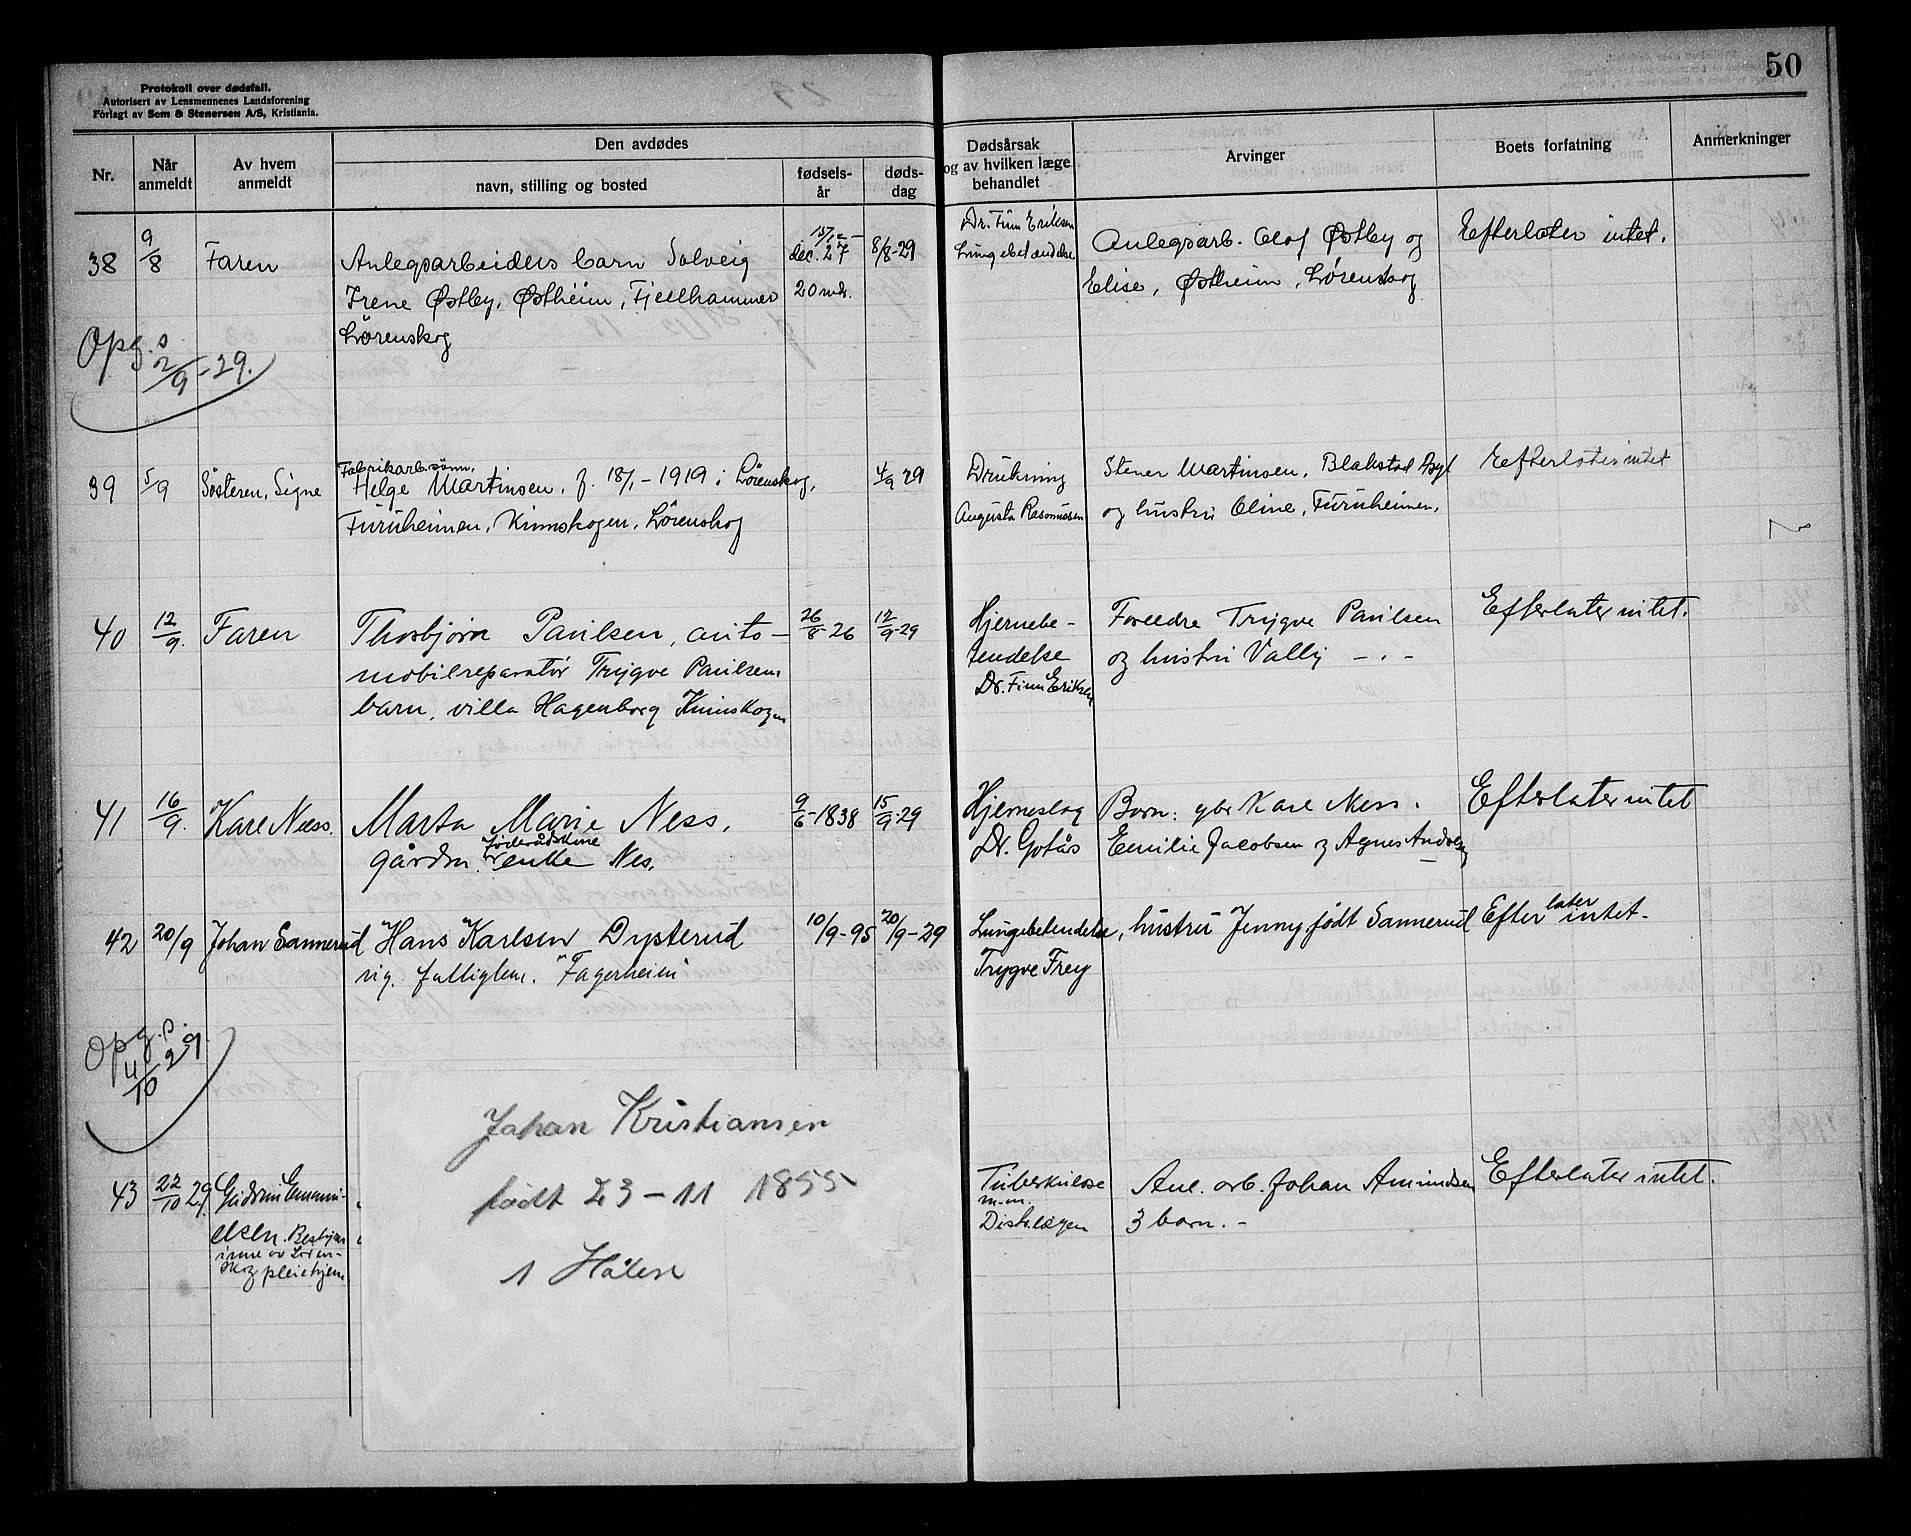 50
Protokoll over dødsfall.
Autorisert av Lensmennenes Landsforening
Forlagt av Sem & Stenersen A/S, Kristiania.
Nr.
Når anmeldt
Av hvem anmeldt
Den avdødes
navn, stilling og bosted
fødsels-år
døds-dag
Dødsårsak og av hvilken læge behandlet
Arvinger
Boets forfatning
Anmerkninger
38 9/8 Faren Anlegsarbeiders barn Solveig dec. 27 8/8-29 Dr. Finn Eriksen Anlegsarb. Olaf Østby og Efterlater intet.
Irene Østby, Østheim, Fjellhammer 20 md. Lungebetændelse Elise, Østheim, Lørenskog
Lørenskog
Opg. s.
2/9-29.
39 5/9 Søsteren, Signe Fabrikarb. sønn. 4/9 29 Drukning Stener Martinsen, Blakstad Asyl Efterlater intet
Helge Martinsen, f. 18/1-1919 i Lørenskog,
Furuheimen, Kinnskogen, Lørenskog Augusta Rasmussen og hustru Oline, Furuheimen.
40 12/9. Faren Thorbjørn Paulsen, auto- 26/8-26 12/9-29 Hjernebe- Foreldre Trygve Paulsen Efterlater intet.
mobilreparatør Trygve Paulsens tendelse og hustru Vally -"-
barn, villa Hagenborg Kinnskogen Dr. Finn Eriksen
41 16/9. Kare Næss. Marta Marie Ness, 9/6-1838 15/9-29 Hjerneslag Barn: gbr Kare Ness. Efterlater intet
føderådskone
gårdm. enke Nes. Dr. Gotås Emilie Jacobsen og Agnes Andersen
42 20/9 Johan Sannerud Hans Karlsen Dysterud 10/9-95 20/9-29 Lungebetendelse, hustru Jenny, født Sannerud Efterlater intet.
rig. fattiglem. "Fagerheim" Trygve Frey
Opg. s.
4/10 29.
Johan Kristiansen
født 23-11 1855
1 Hålen
43 22/10 29. Gudrun Emanu- Tuberkulose Anl. arb. Johan Amundsen Efterlater intet.
elsen. Bestyrer- m.m.
inne av Løren- Distr.lægen 3 barn.-
skog pleiehjem